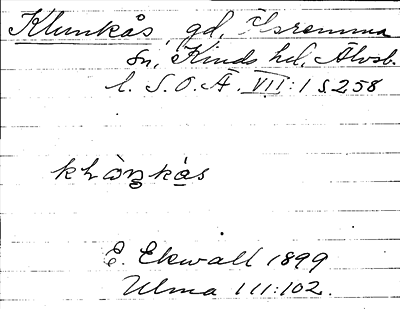 Klunkås gd, Isremma
sn, Kinds hd, Älvsb.
l. S.O.Ä. VII:1 s 258
E. Ekwall 1899
Ulma 111:102.